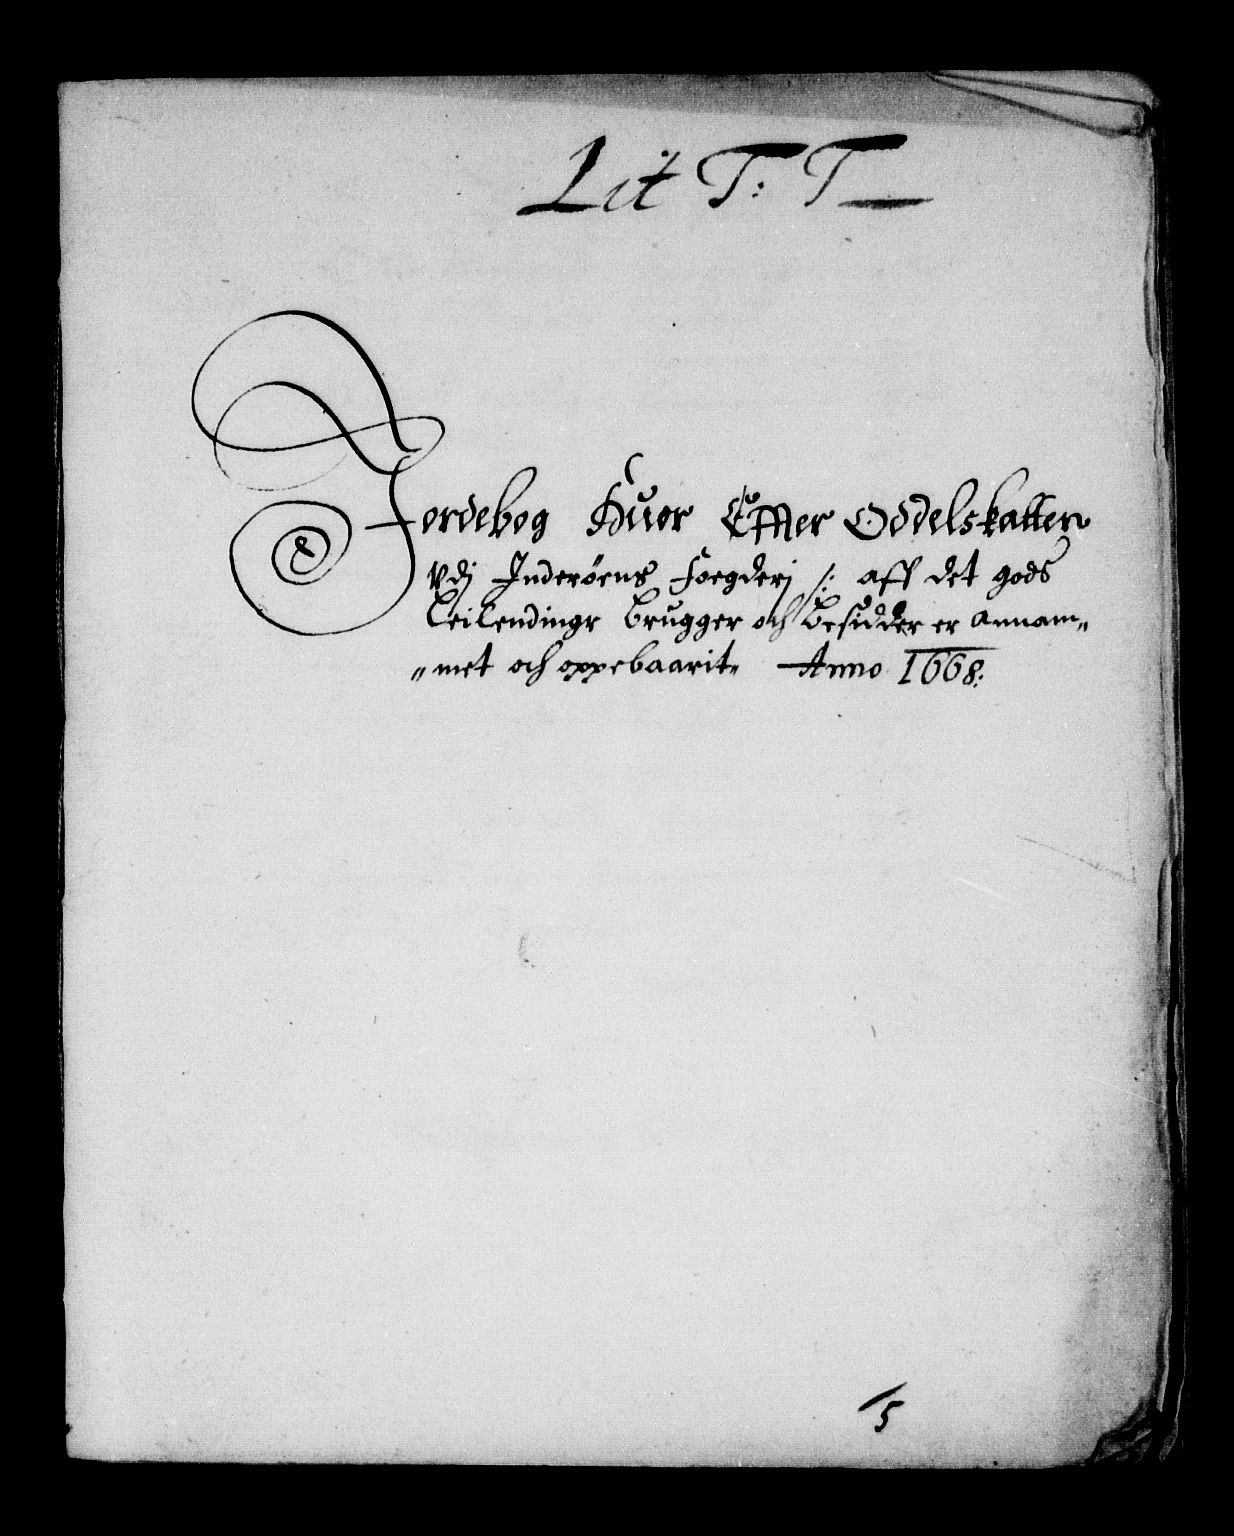 Lit T: T
Jordebog Huor Effter Oddelskatten
Vdj Inderöens Foegderj /: aff det gods
Leilendingr Brugger och Besidder er Annam„
„met och oppebaarit„ Anno 1668:
5